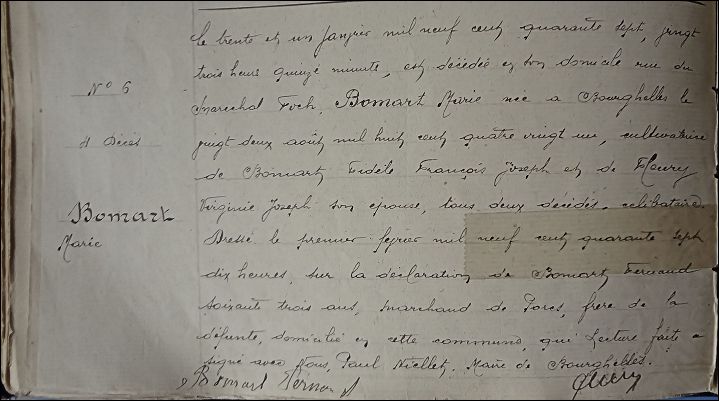 Nº 6
4 Décès
Bomart
Marie
Le trente et un Janvier mil neuf cent quarante sept, vingt
trois heurs quinze minute, est décédée en son domicile rue du
Marechal Foch, Bomart Marie née a Bourghelles le
vingt deux août mil huit cent quatre vingt un, cultivatrice
de Bomart Fidèle François Joseph et de Fleury
Virginie Joseph son epouse, tous deux décédés. celibataire.
Dressé le premier fevrier mil neuf cent quarante sept
dix heures, sur la déclaration de Bomart Fernand
soixante trois ans, marchand de Porcs, frère de la
défunte, domicilié en cette commune, qui Lecture faite a
signé avec Nous, Paul Maire de Bourghelles.
Bomart Fernand